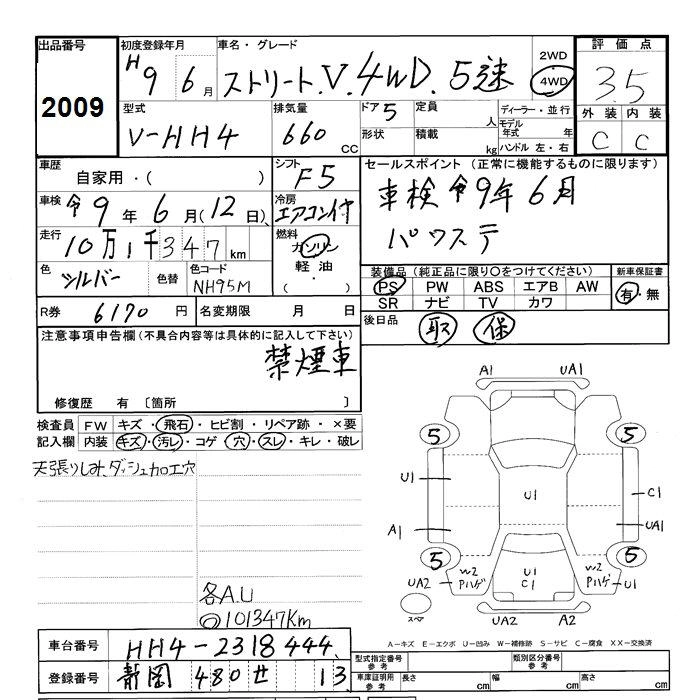 出品番号 初度登録年月 車名・グレード 2WD 評価点
2009 H9 6月 ストリート.V.4WD.5速 4WD 3.5
型式 排気量 ドア 5 定員 人 ディーラー・並行 外装 内装
V-HH4 660 CC 形状 積載 kg モデル年式 年 ハンドル 左・右 C C
車歴 自家用・( ) シフト F5 セールスポイント(正常に機能するものに限ります)
車検 令9年 6月(12日) 冷房 エアコン付 車検 令9年6月
走行 10万1千347km 燃料 ガソリン 軽油 ( ・ ) パワステ
色 シルバー 色替 色コード NH95M 装備品(純正品に限り○をつけてください) 新車保証書
PS PW ABS エアB AW 有・無
SR ナビ TV カワ
R券 6170円 名変期限 月 日 後日品 取 保
注意事項申告欄(不具合内容等は具体的に記入して下さい)
禁煙車
修復歴 有 〔箇所 〕
検査員 FW キズ・飛石・ヒビ割・リペア跡・×要
記入欄 内装 キズ・汚レ・コゲ・穴・スレ・キレ・破レ
天張りしみ、ダッシュカロエ穴
A1 UA1
5 5
U1 U1 C1
A1 UA1
5 5
UA2 W2 Pハゲ U1 C1 W2 Pハゲ U1
スペア UA2 A2
各A.U
◎101347Km
A−キズ E−エクボ U−凹み W−補修跡 S−サビ C−腐食 XX−交換済
車台番号 HH4-2318444.
型式指定番号 参考 類別区分番号 参考
登録番号 静岡 480 せ 13
車庫証明用 参考 長さ cm 幅 cm 高さ cm